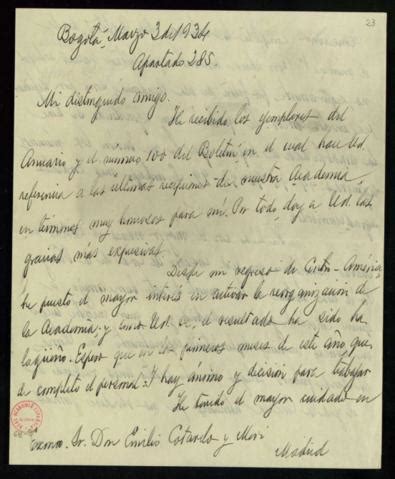 23
Bogotá, Marzo 3 de 1934
Apartado 285.
Mi distinguido amigo:
He recibido los ejemplares del
Anuario y el número 100 del Boletín en el cual hace Ud.
referencia a las últimas recepciones de nuestra Academia,
en términos muy honrosos para mí. Por todo, doy a Ud. las
gracias más expresivas.
Desde mi regreso de Centro-América,
he puesto el mayor interés en activar la reorganización de
la Academia, y como Ud. ve, el resultado ha sido ha
lagüeño. Espero que en los primeros meses de este año que
de completo el personal. Y hay ánimo y decisión para trabajar.
He tenido el mayor cuidado en
Excmo. Sr. Don Emilio Cotarelo y Mori
Madrid